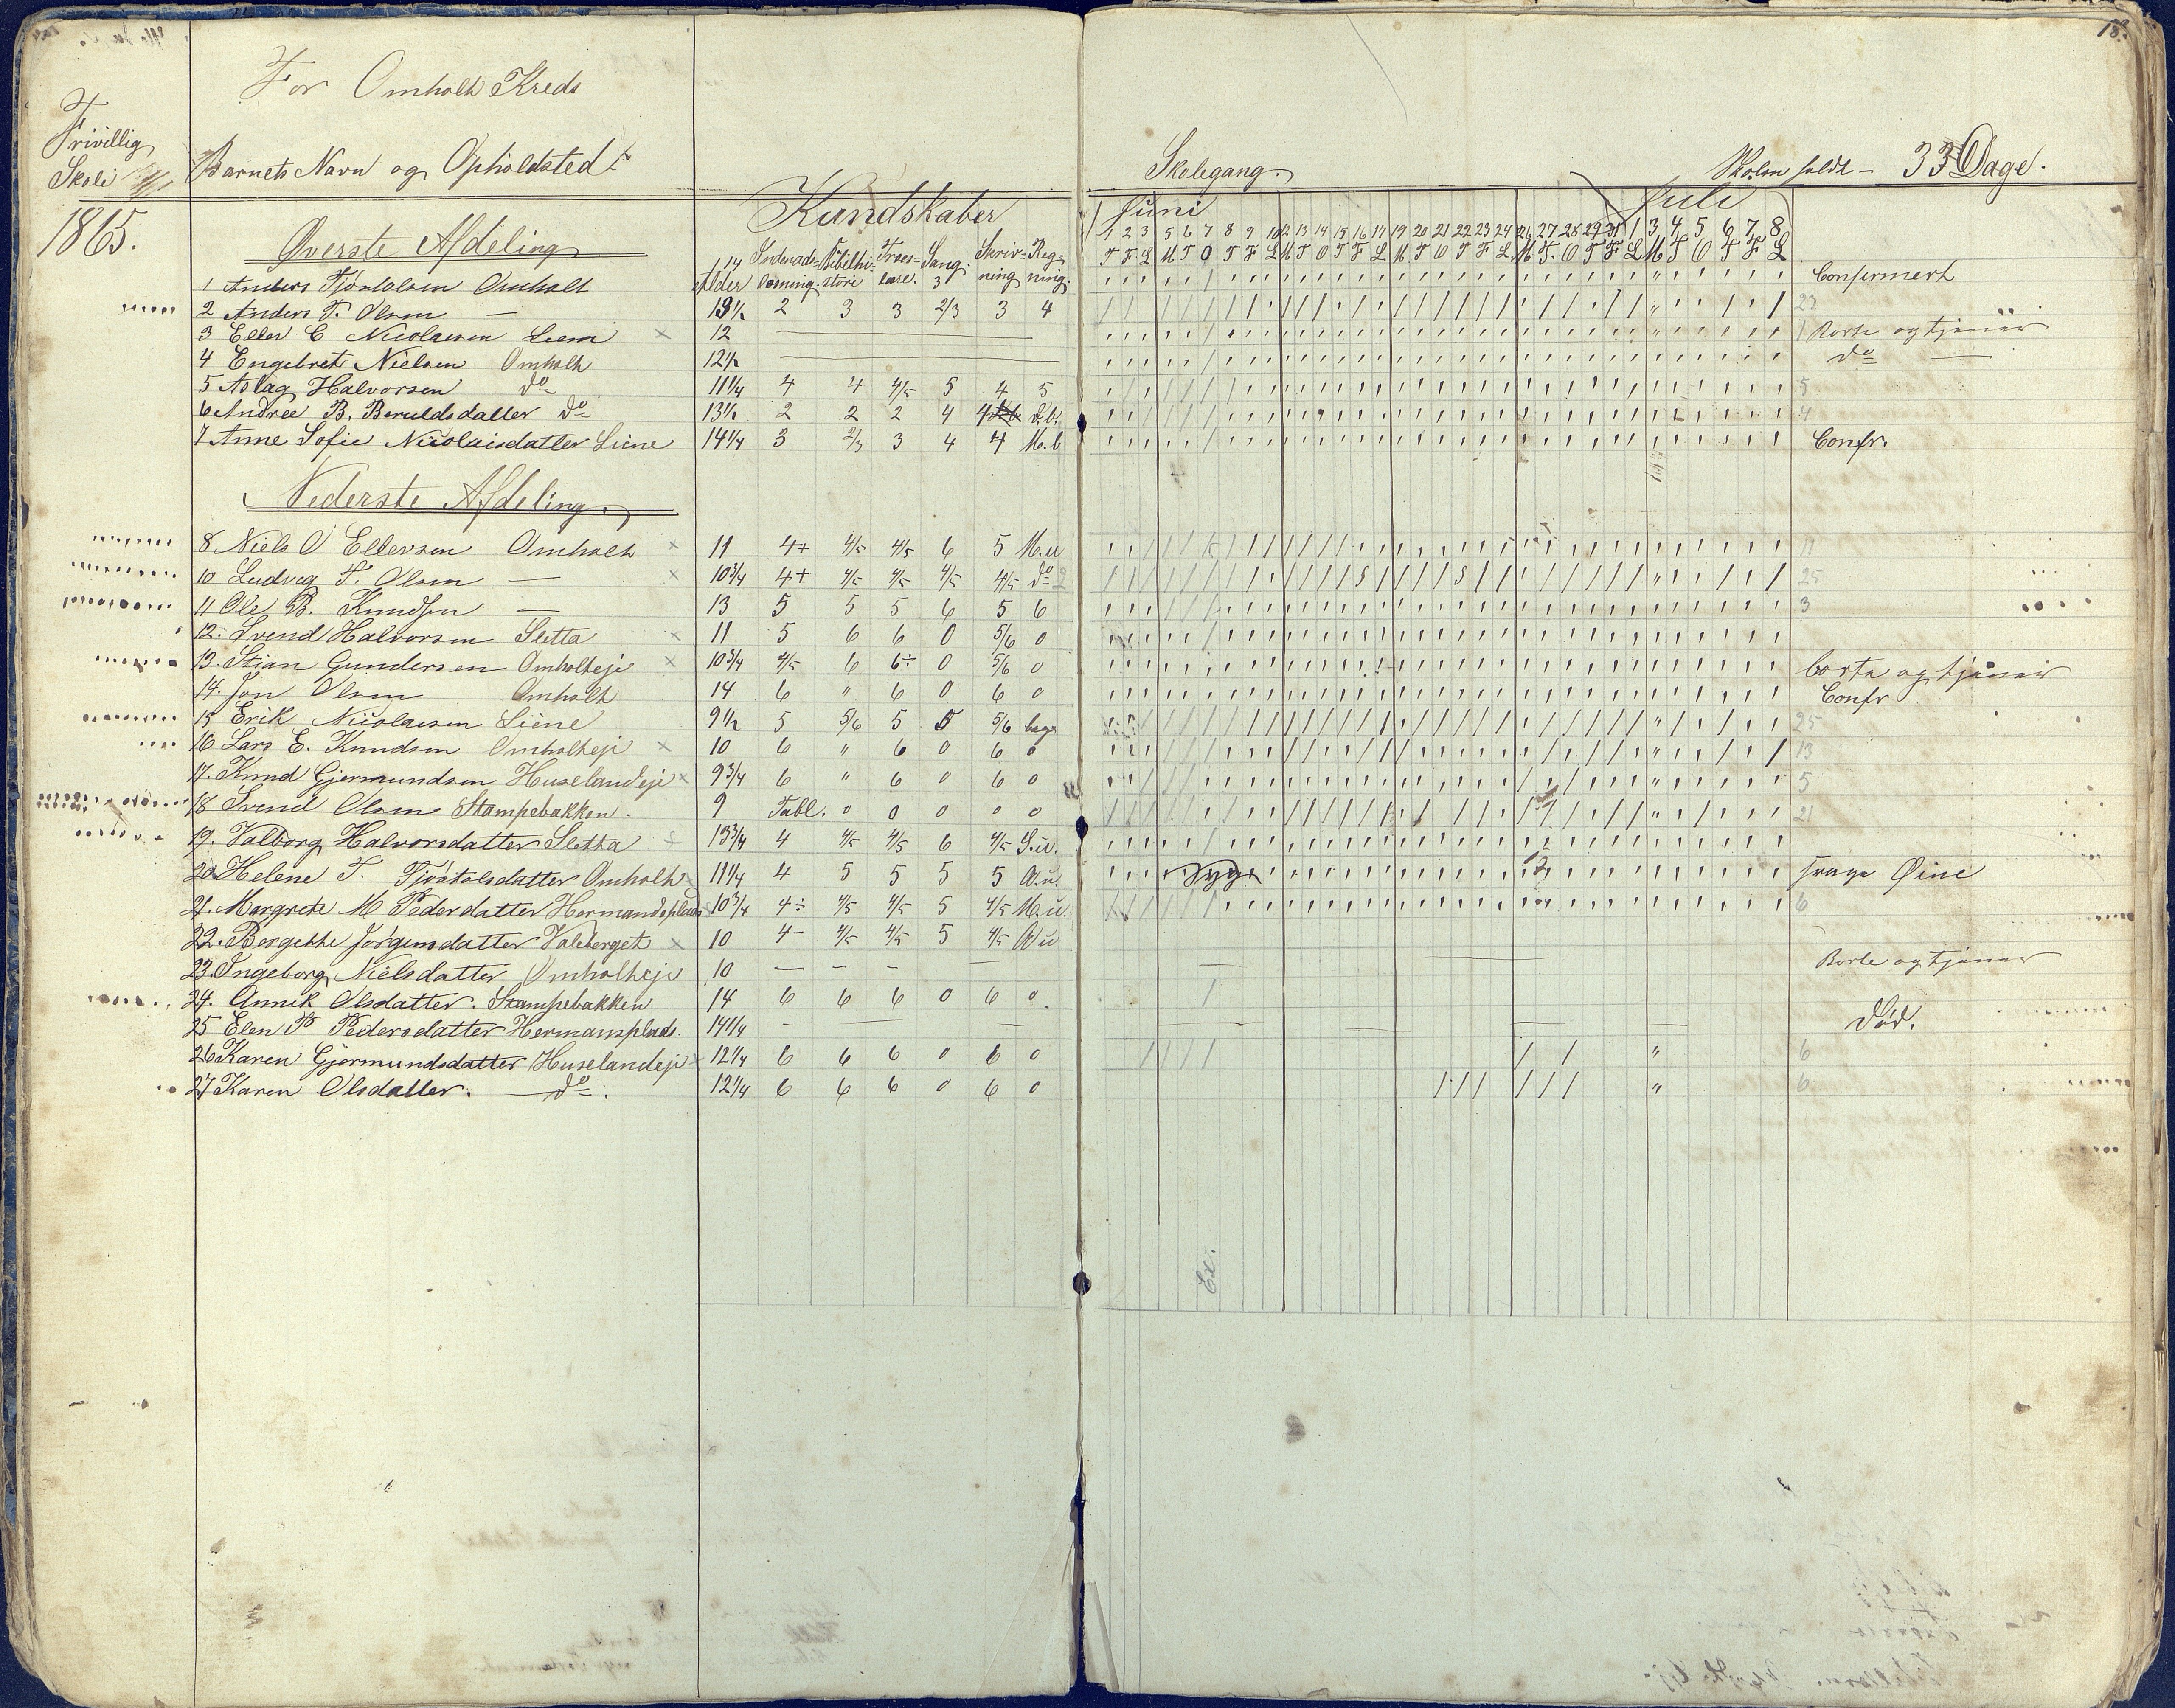 For Omholt Kreds
Frivillig
Skole
Barnets Navn og Opholdsted
Skolegang.
Skolen holdt – 33 Dage.
18.
1865.
Kundskaber
Juni
Juli
Øverste Afdeling
Alder
Indenads=læsning
Bibelhistorie
Troes=lære.
Sang.
Skriv=ning
Reg=ning.
1 2 3 5 6 7 8 9 10 12 13 14 15 16 17 19 20 21 22 23 24 26 27 28 29 1 3 4 5 6 7 8
T F L M T O T F L M T O T F L M T O T F L M T. O T F L M T O T F L
1 Anders Omholt 14 3 Confirmert
2 Anders T. Olsen — 13½ 2 3 3 2/3 3 4 23
3 Ellev C Nicolaisen 12 Borte og tjener
4 Engebret Nielsen Omholt 12½ do —
5 Aslag Halvorsen do 11¼ 4 4 4/5 5 4 5 5
6 Andree B. Beruldsdatter do 13½ 2 2 2 4 4 4
7 Anne Sofie Nicolaisdatter Liene 14¼ 3 2/3 3 4 4 M.b Confr.
Nederste Afdeling.
8 Niels O Ellevsen Omholt 11 4+ 4/5 4/5 6 5 M.u 11
10 Ludvig T. Olsen — 10¾ 4+ 4/5 4/5 4/5 4/5 do 25
11 Ole B. Knudsen — 13 5 5 5 6 5 6 3
12. Svend Halvorsen Sletta 11 5 6 6 0 5/6 0
13. Stian Gundersen Omholteje 10¾ 4/5 6 6÷ 0 5/6 0 borte og tjener
14. Jon Olsen Omholt 14 6 " 6 0 6 0 Confr
15 Erik Nicolaisen Liene 9½ 5 5/6 5 5 5/6 beg. 25
16 Lars E. Knudsen Omholteje 10 6 " 6 0 6 0 13
17. Knud Gjermundsen Huselandeje 9¾ 6 " 6 0 6 0 5
18 Svend Olsen Stampebakken. 9 Tabl. 0 0 0 0 0 21
19. Valborg Halvorsdatter Sletta 13¾ 4 4/5 4/5 6 4/5 S.u.
20 Helene T. Tjøstolsdatter Omholt 11¼ 4 5 5 5 5 A.u. Syge svage Øine
21. Margrete M Pedersdatter Hermandsplads 10¾ 4÷ 4/5 4/5 5 4/5 M.u. 6
22. Borgitte Jørgensdatter Valeberget 10 4- 4/5 4/5 5 4/5 A u
23. Ingeborg Nielsdatter Omholteje 10 — — — Borte og tjener
24. Annik Olsdatter. Stampebakken 14 6 6 6 0 6 0.
25 Elen P Pedersdatter Hermansplads. 14¼ — Død.
26 Karen Gjermundsdatter Huselandeje 12¼ 6 6 6 0 6 0 " 6
27 Karen Olsdatter. — do. 12¼ 6 6 6 0 6 0 " 6
Ex.